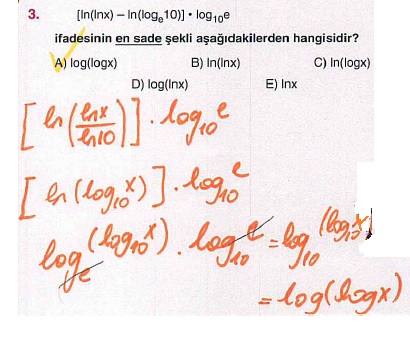 3. [ln(lnx) – ln(logₑ10)] • log₁₀e
ifadesinin en sade şekli aşağıdakilerden hangisidir?
A) log(logx) B) ln(lnx) C) ln(logx)
D) log(lnx) E) lnx
[ln(lnx/ln10)] . log₁₀e
[ln(log₁₀x)] . log₁₀e
logₑ(log₁₀x) . log₁₀e = log₁₀(log₁₀x)
= log(logx)